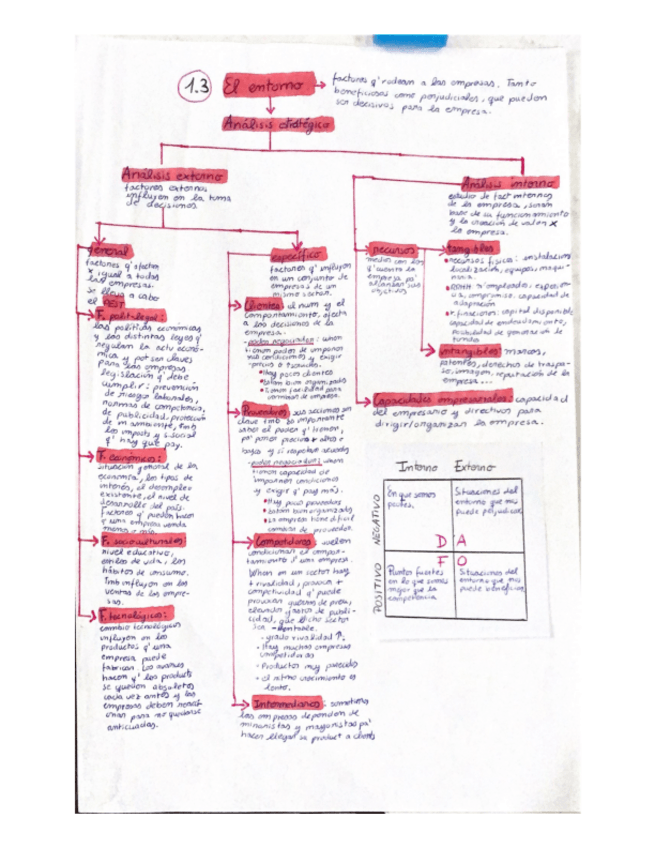 1.3 El entorno → factores q' rodean a las empresas. Tanto
beneficiosos como perjudiciales, que pueden
ser decisivos para la empresa.
Análisis estratégico
Análisis externo
factores externos
influyen en la toma
de decisiones
general
factores q' afectan
x igual a todas
las empresas.
Se lleva a cabo
el PEST
F. polit-legal:
las políticas económicas
y las distintas leyes q'
regulan la actv econó-
mica y
para las empresas
legislación q' debe
cumplir: prevención
de riesgos laborales,
normas de competencia,
de publicidad, protección
de m. ambiente, tmb
los impsts y s. social
q' hay que pag.
F. económicos:
situación general de la
economía, los tipos de
interés, el desempleo
existente, el nivel de
desarrollo del país.
factores q' pueden hacer
q' una empresa venda
menos o más.
F. socioculturales:
nivel educativo,
estilos de vida, los
hábitos de consumo.
Tmb influyen en las
ventas de las empre-
sas.
F. tecnológicos:
cambio tecnológico
influyen en los
productos q' una
empresa puede
fabricar. Los avances
hacen q' los products
se queden obsoletos
cada vez antes y las
empresas deben
para no quedarse
anticuadas.
específico
factores q' influyen
en un conjunto de
empresas de un
mismo sector.
Clientes: el num y el
comportamiento, afecta
a las decisiones de la
empresa.
- poder negociador: when
tienen poder de imponer
sus condiciones y exigir
Hay pocos clientes
Están bien organizados
Tienen facilidad para
cambiar de empresa.
Proveedores: sus acciones son
clave tmb es importante
saber el poder q' tienen,
pa' poner precios + altos o
bajos y si respetar acuerdos
- poder negociador: when
tienen capacidad de
imponer condiciones
y exigir q' pag más.
Hay pocos proveedores
Están bien organizados
La empresa tiene difícil
cambiar de proveedor.
Competidores: suelen
condicionar el compor-
tamiento d' una empresa.
When en un sector hay
+ rivalidad, provoca +
competividad q' puede
provocar guerras de precios,
elevados gastos de publi-
cidad, que dicho sector
sea - rentable.
- grado rivalidad ↑:
- Hay muchas empresas
competidoras
- Productos muy parecidos
- el ritmo crecimiento es
lento.
Intermediarios: sometimes
las empresas dependen de
minoristas y mayoristas pa'
hacer llegar su product a clients
Análisis interno
estudio de fact internos
de la empresa, serán
base de su funcionamiento
y la creación de valor x
la empresa.
recursos
medios con los
q' cuenta la
empresa pa'
alcanzar sus
objetivos
tangibles
recursos físicos: instalacion,
localización, equipos, maqui-
naria.
RRHH: nº empleados, experien-
cia, compromiso, capacidad de
adaptación
r. financieros: capital disponible,
capacidad de endeudamiento,
posibilidad de generar en el
futuro
intangibles: marcas,
patentes, derechos de traspa-
so, imagen, reputación de la
empresa...
Capacidades empresariales: capacidad
del empresario y directivos para
dirigir/organizar la empresa.
Interno Externo
NEGATIVO
En que somos
peores.
D
Situaciones del
entorno que nos
puede perjudicar.
A
POSITIVO
F
Puntos fuertes
en lo que somos
mejor que la
competencia
O
Situaciones del
entorno que nos
puede beneficiar.